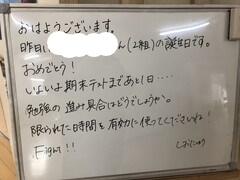 おはようございます。
昨日は ん(2組)の誕生日です。
おめでとう!
いよいよ期末テストまであと1日‥‥
勉強の進み具合はどうでしょうか。
限られた時間を有効に使ってくださいね!
Fight!!